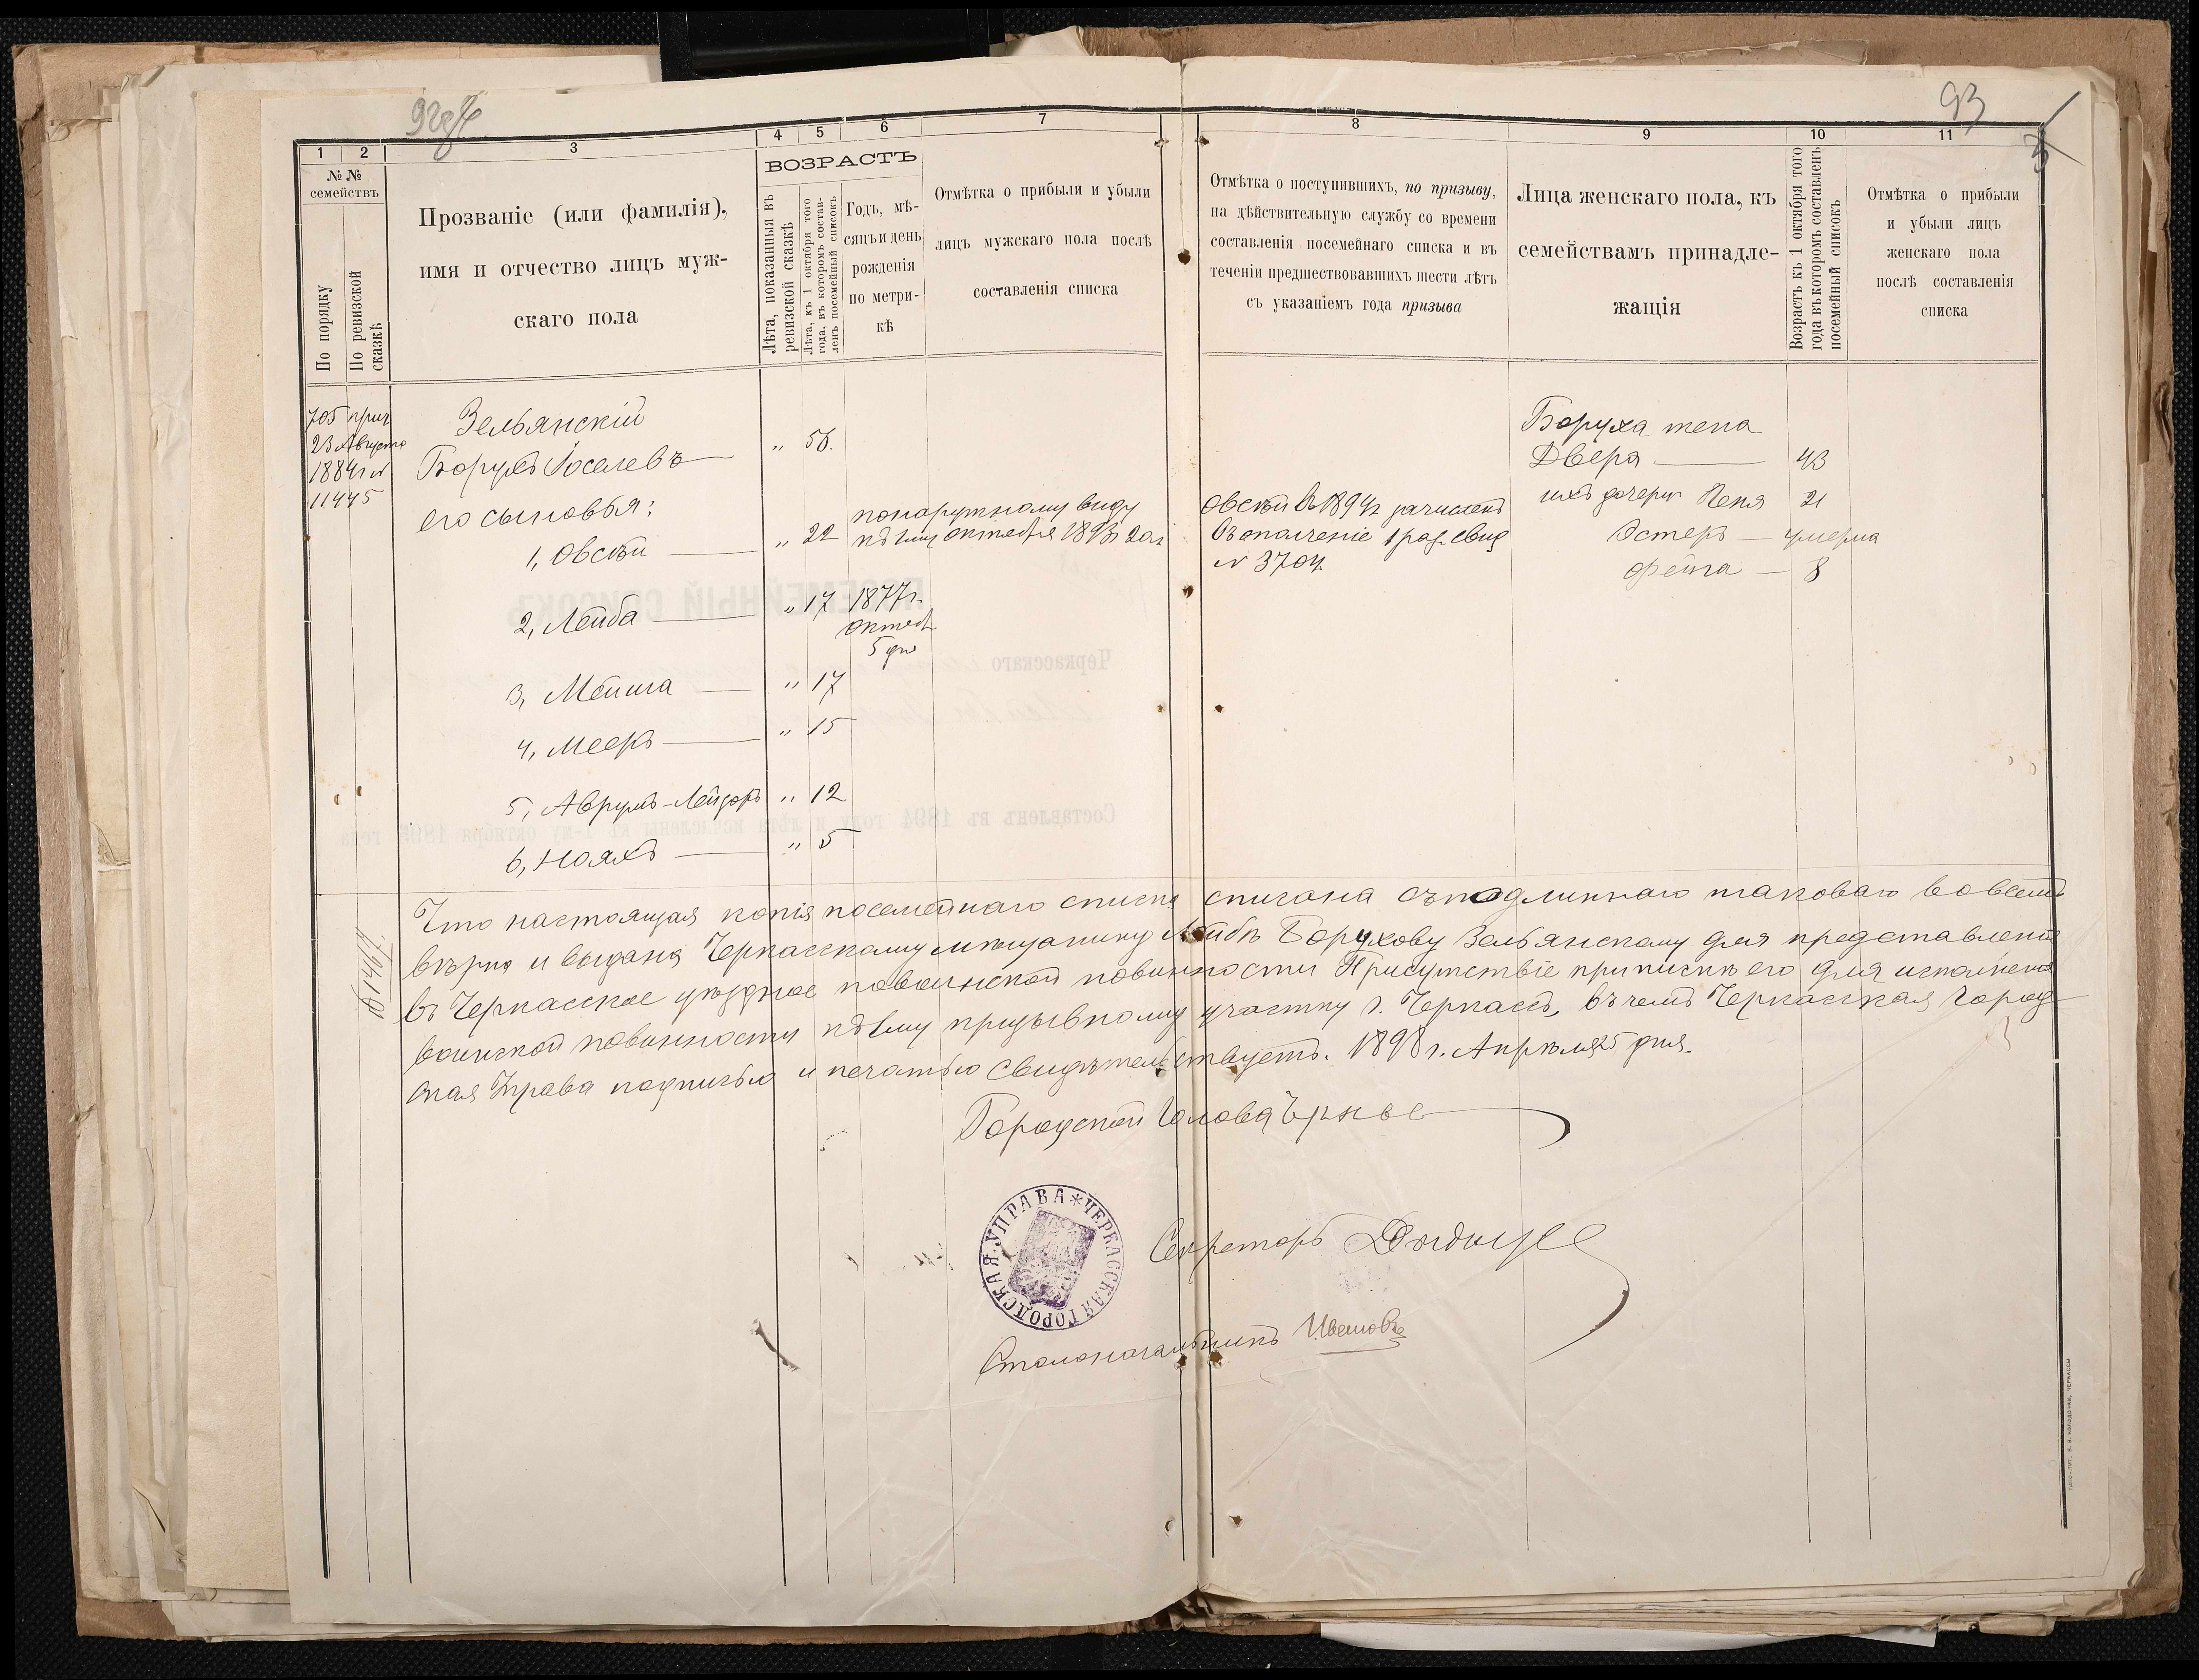 93
1
2
3
4
5
6
7
8
9
10
11
№ №
семействъ
По порядку
По ревизской сказкѣ
Прозваніе (или фамилія),
имя и отчество лицъ муж-
скаго пола
ВОЗРАСТЪ
Лѣта, показанныя въ
ревизской сказкѣ
Лѣта, къ 1 октября того
года, въ которомъ состав-
ленъ посемейный списокъ
Годъ, мѣ-
сяцъ и день
рожденія
по метри-
кѣ
Отмѣтка о прибыли и убыли
лицъ мужскаго пола послѣ
составленія списка
Отмѣтка о поступившихъ, по призыву,
на дѣйствительную службу со времени
составленія посемейнаго списка и въ
теченіи предшествовавшихъ шести лѣтъ
съ указаніемъ года призыва
Лица женскаго пола, къ
семействамъ принадле-
жащія
Возрастъ къ 1 октября того
года въ которомъ составленъ
посемейный списокъ
Отмѣтка о прибыли
и убыли лицъ
женскаго пола
послѣ составленія
списка
705 прич
23 Августа
1884 г №
11445
Зельянскій
Борухъ Іоселевъ " 56.
его сыновья:
1, Овсѣй " 22
по наружному виду
къ 1му октября 1893 г 20 л
2, Лейба " 17 1877 г.
октяб
5 дня
3, Мейша " 17
4, Мееръ " 15
5, Аврумъ-Лейзоръ " 12
6, Нояхъ " 5
Овсѣй въ 1894 г зачисленъ
въ ополченіе 1 раз. свид
№ 3704
Боруха жена
Двера 43
ихъ дочери Пеня 21
Эстеръ умерла
Фейга 8
ПОСЕМЕЙНЫЙ СПИСОКЪ
Черкасскаго
Составленъ въ 1894 году и лѣта исчислены къ 1-му октября года
Что настоящая копія посемейнаго списка списана съ подлиннаго таковаго во всемъ
вѣрна и выдана Черкасскому мѣщанину Лейбѣ Борухову Зельянскому для представленія
въ Черкасское уѣздное по воинской повинности Присутствіе приписки его для исполненія
воинской повинности къ 1му призывному участку г. Черкассъ, въ чемъ Черкасская Город-
ская Управа подписью и печатью свидѣтельствуетъ. 1898 г. Апрѣля 25 дня.
Городской Голова
ЧЕРКАССКАЯ ГОРОДСКАЯ УПРАВА
Секретарь
Столоначальникъ